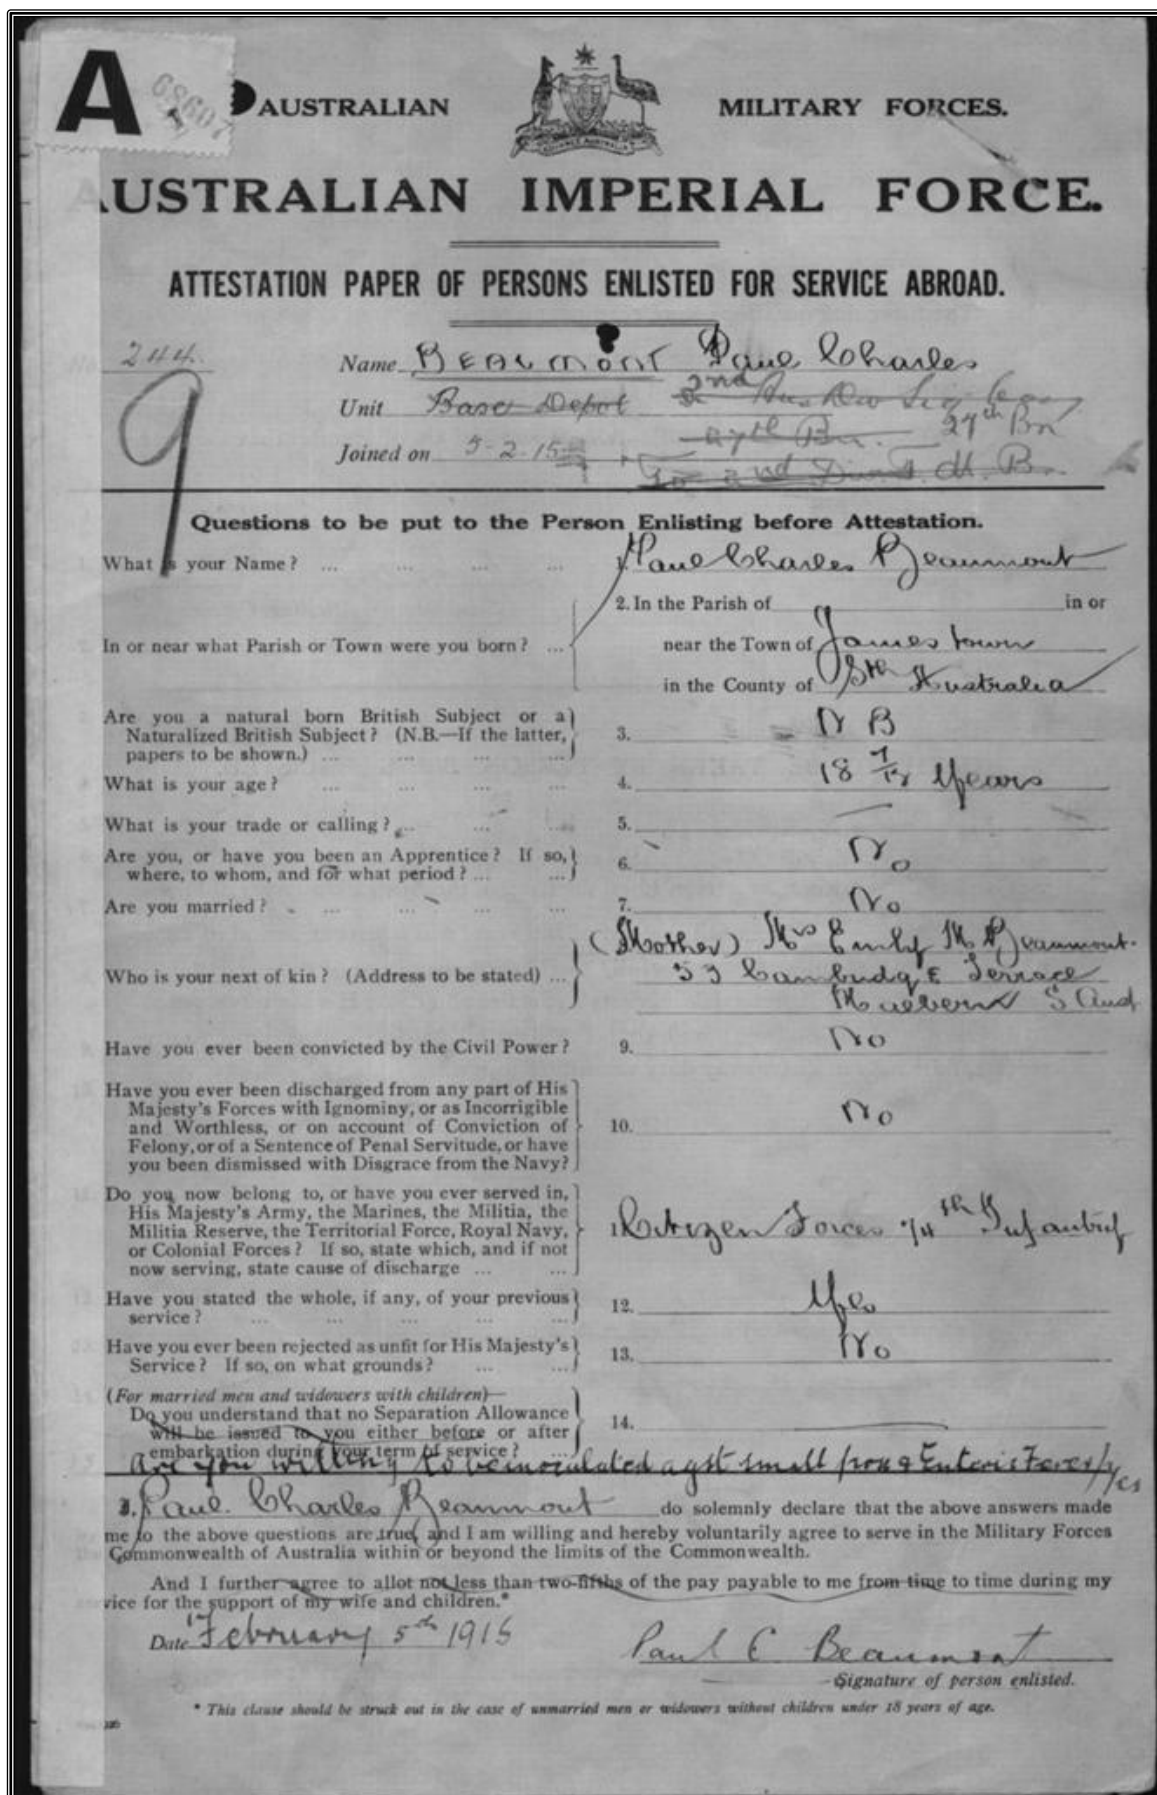 A
AUSTRALIAN MILITARY FORCES.
AUSTRALIAN IMPERIAL FORCE.
ATTESTATION PAPER OF PERSONS ENLISTED FOR SERVICE ABROAD.
244. Name BEAUMONT Paul Charles
9
Unit Base Depot 2nd Aus Div Sig Coy
27th Bn. 27th Bn
Joined on 5-2-15
To 2nd Div. T. M. B.
Questions to be put to the Person Enlisting before Attestation.
What is your Name? ... ... ... ... 1. Paul Charles Beaumont
2. In the Parish of in or
In or near what Parish or Town were you born? ... near the Town of Jamestown
in the County of Sth Australia
Are you a natural born British Subject or a
Naturalized British Subject? (N.B.—If the latter, 3. N B
papers to be shown.) ... ... ... ...
What is your age? ... ... ... ... 4. 18 7/12 Years
What is your trade or calling? ... ... ... 5. —
Are you, or have you been an Apprentice? If so, 6. No
where, to whom, and for what period? ... ...
Are you married? ... ... ... ... 7. No
(Mother) Mrs Emily M Beaumont.
Who is your next of kin? (Address to be stated) ... 53 Cambridge Terrace
Malvern S Aust
Have you ever been convicted by the Civil Power? 9. No
Have you ever been discharged from any part of His
Majesty's Forces with Ignominy, or as Incorrigible
and Worthless, or on account of Conviction of 10. No
Felony, or of a Sentence of Penal Servitude, or have
you been dismissed with Disgrace from the Navy?
Do you now belong to, or have you ever served in,
His Majesty's Army, the Marines, the Militia, the
Militia Reserve, the Territorial Force, Royal Navy, 11. Citizen Forces 74th Infantry
or Colonial Forces? If so, state which, and if not
now serving, state cause of discharge ... ...
Have you stated the whole, if any, of your previous 12. Yes
service? ... ... ... ... ...
Have you ever been rejected as unfit for His Majesty's 13. No
Service? If so, on what grounds? ... ...
(For married men and widowers with children)—
Do you understand that no Separation Allowance
will be issued to you either before or after 14. —
embarkation during your term of service? ...
Are you willing to be inoculated agst small pox & Enteric Fever/yes
I, Paul Charles Beaumont do solemnly declare that the above answers made
me to the above questions are true, and I am willing and hereby voluntarily agree to serve in the Military Forces
Commonwealth of Australia within or beyond the limits of the Commonwealth.
And I further agree to allot not less than two-fifths of the pay payable to me from time to time during my
vice for the support of my wife and children.*
Date February 5th 1915 Paul C Beaumont
Signature of person enlisted.
* This clause should be struck out in the case of unmarried men or widowers without children under 18 years of age.